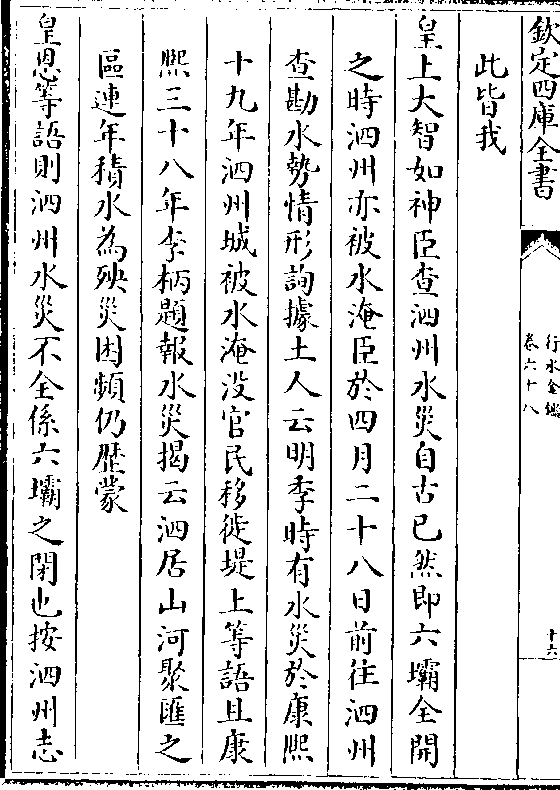 欽定四庫全書
行水金鑑
卷六十八
十六
此皆我
皇上大智如神臣查泗州水災自古已然即六壩全開
之時泗州亦被水淹臣於四月二十八日前往泗州
查勘水勢情形詢據土人云明季時有水災於康熙
十九年泗州城被水淹没官民移徙堤上等語且康
熙三十八年李柄題報水災揭云泗居山河聚匯之
區連年積水為殃災困頻仍歷蒙
皇恩等語則泗州水災不全係六壩之閉也按泗州志